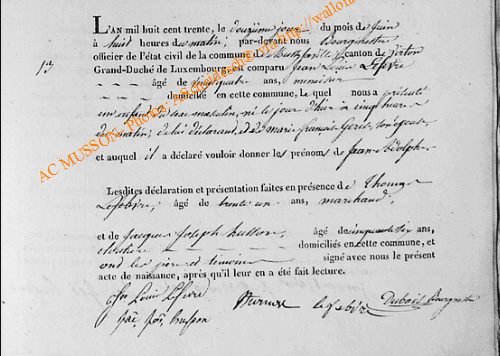 L'AN mil huit cent trente, le douzième jour du mois de juin
à huit heures du matin; par-devant nous Bourgmestre
officier de l'état civil de la commune de canton de Virton
13
Grand-Duché de Luxembourg est comparu Jean Louis Lefevre
âgé de quatre ans, menuisier
domicilié en cette commune, Lequel nous a présenté
un enfant du sexe masculin, né le jour d'hier à cinq heures
du matin, de lui déclarant, et de marie son épouse
et auquel il a déclaré vouloir donner les prénoms de Jean
Lesdites déclaration et présentation faites en présence de Thomas
Lefebvre, âgé de trente un ans, marchand,
et de jacques Joseph husson, âgé de cinquante six ans,
domiciliés en cette commune, et
ont les père et témoins signé avec nous le présent
acte de naissance, après qu'il leur en a été fait lecture.
Louis Lefevre
husson
lefebvre
Dubois Bourgmestre
AC MUSSON, Photos: